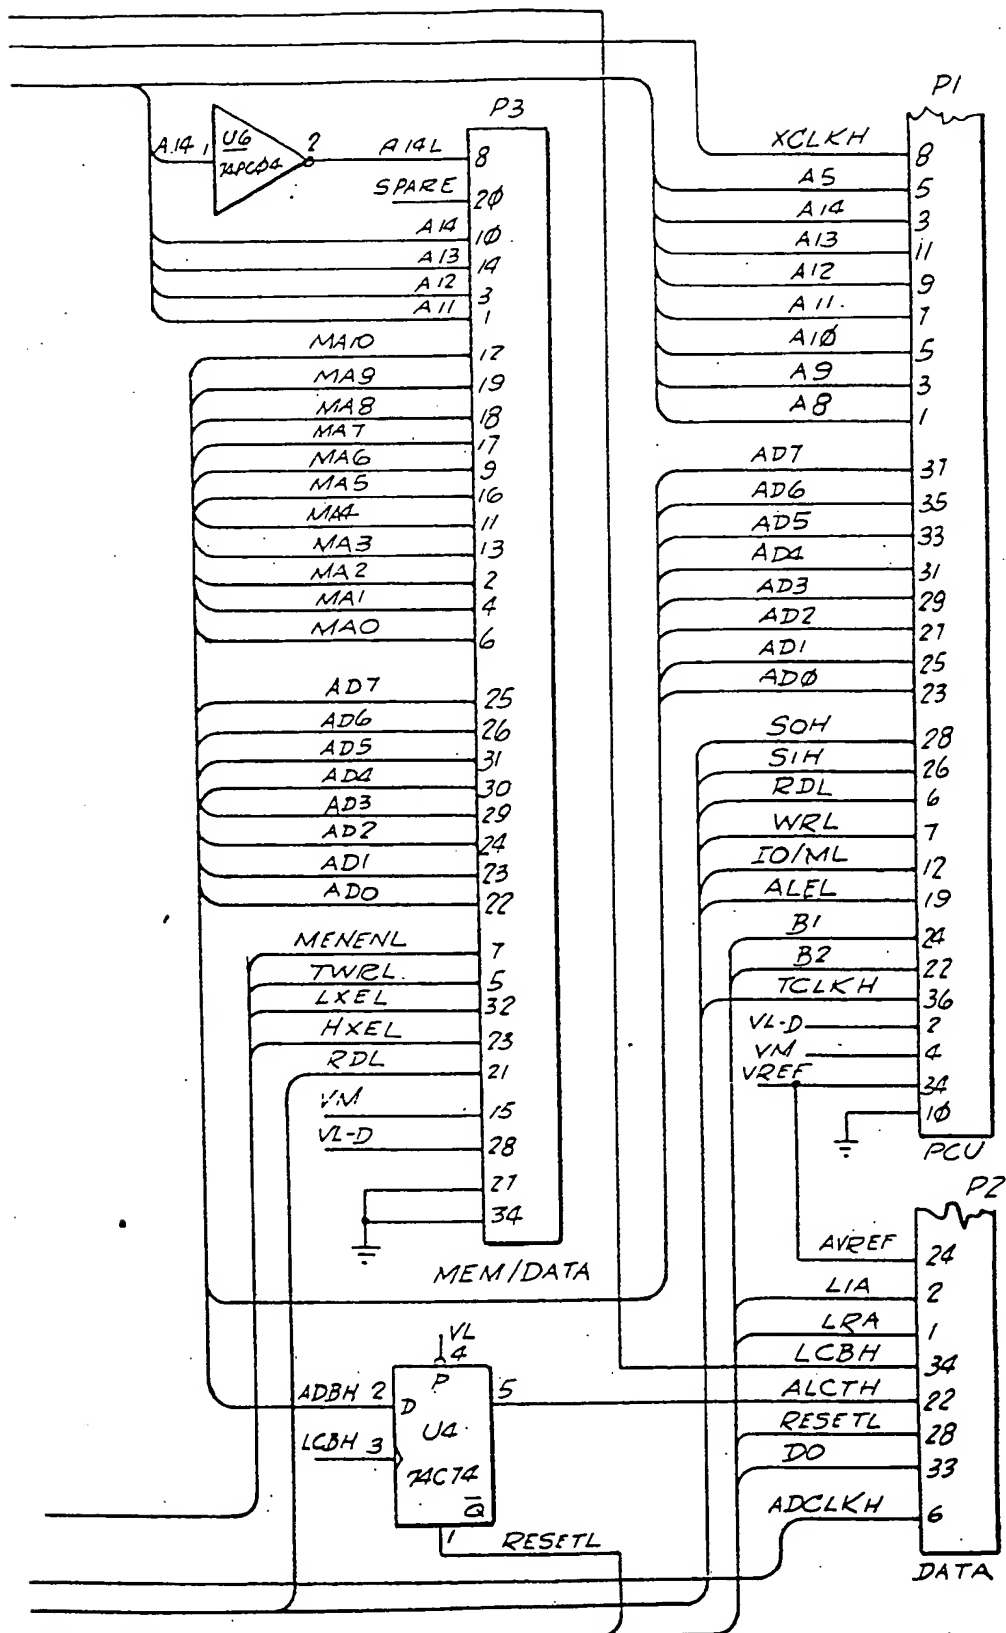 P3
A14 1 U6 2 A14L 8
74PCØ4
SPARE 2Ø
A14 1Ø
A13 14
A12 3
A11 1
MA10 12
MA9 19
MA8 18
MA7 17
MA6 9
MA5 16
MA4 11
MA3 13
MA2 2
MA1 4
MA0 6
AD7 25
AD6 26
AD5 31
AD4 30
AD3 29
AD2 24
AD1 23
AD0 22
MENENL 7
TWRL. 5
LXEL 32
HXEL 23
RDL 21
VM 15
VL-D 28
27
34
MEM/DATA
P1
XCLKH 8
A5 5
A14 3
A13 11
A12 9
A11. 7
A1Ø 5
A9 3
A8 1
AD7 37
AD6 35
AD5 33
AD4 31
AD3 29
AD2 27
AD1 25
ADØ 23
SOH 28
S1H 26
RDL 6
WRL 7
IO/ML 12
ALEL 19
B1 24
B2 22
TCLKH 36
VL-D 2
VM 4
VREF 34
1Ø
PCU
P2
AVREF 24
LIA 2
LRA 1
LCBH 34
ALCTH 22
RESETL 28
DO 33
ADCLKH 6
DATA
VL
4
P
ADBH 2 D 5
U4
LCBH 3
74C74
Q̅
1
RESETL